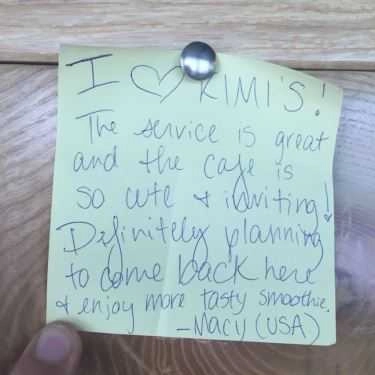 I ♡ KIMI'S!
The service is great
and the cafe is
so cute & inviting!
Definitely planning
to come back here
& enjoy more tasty smoothie.
-Macy (USA)